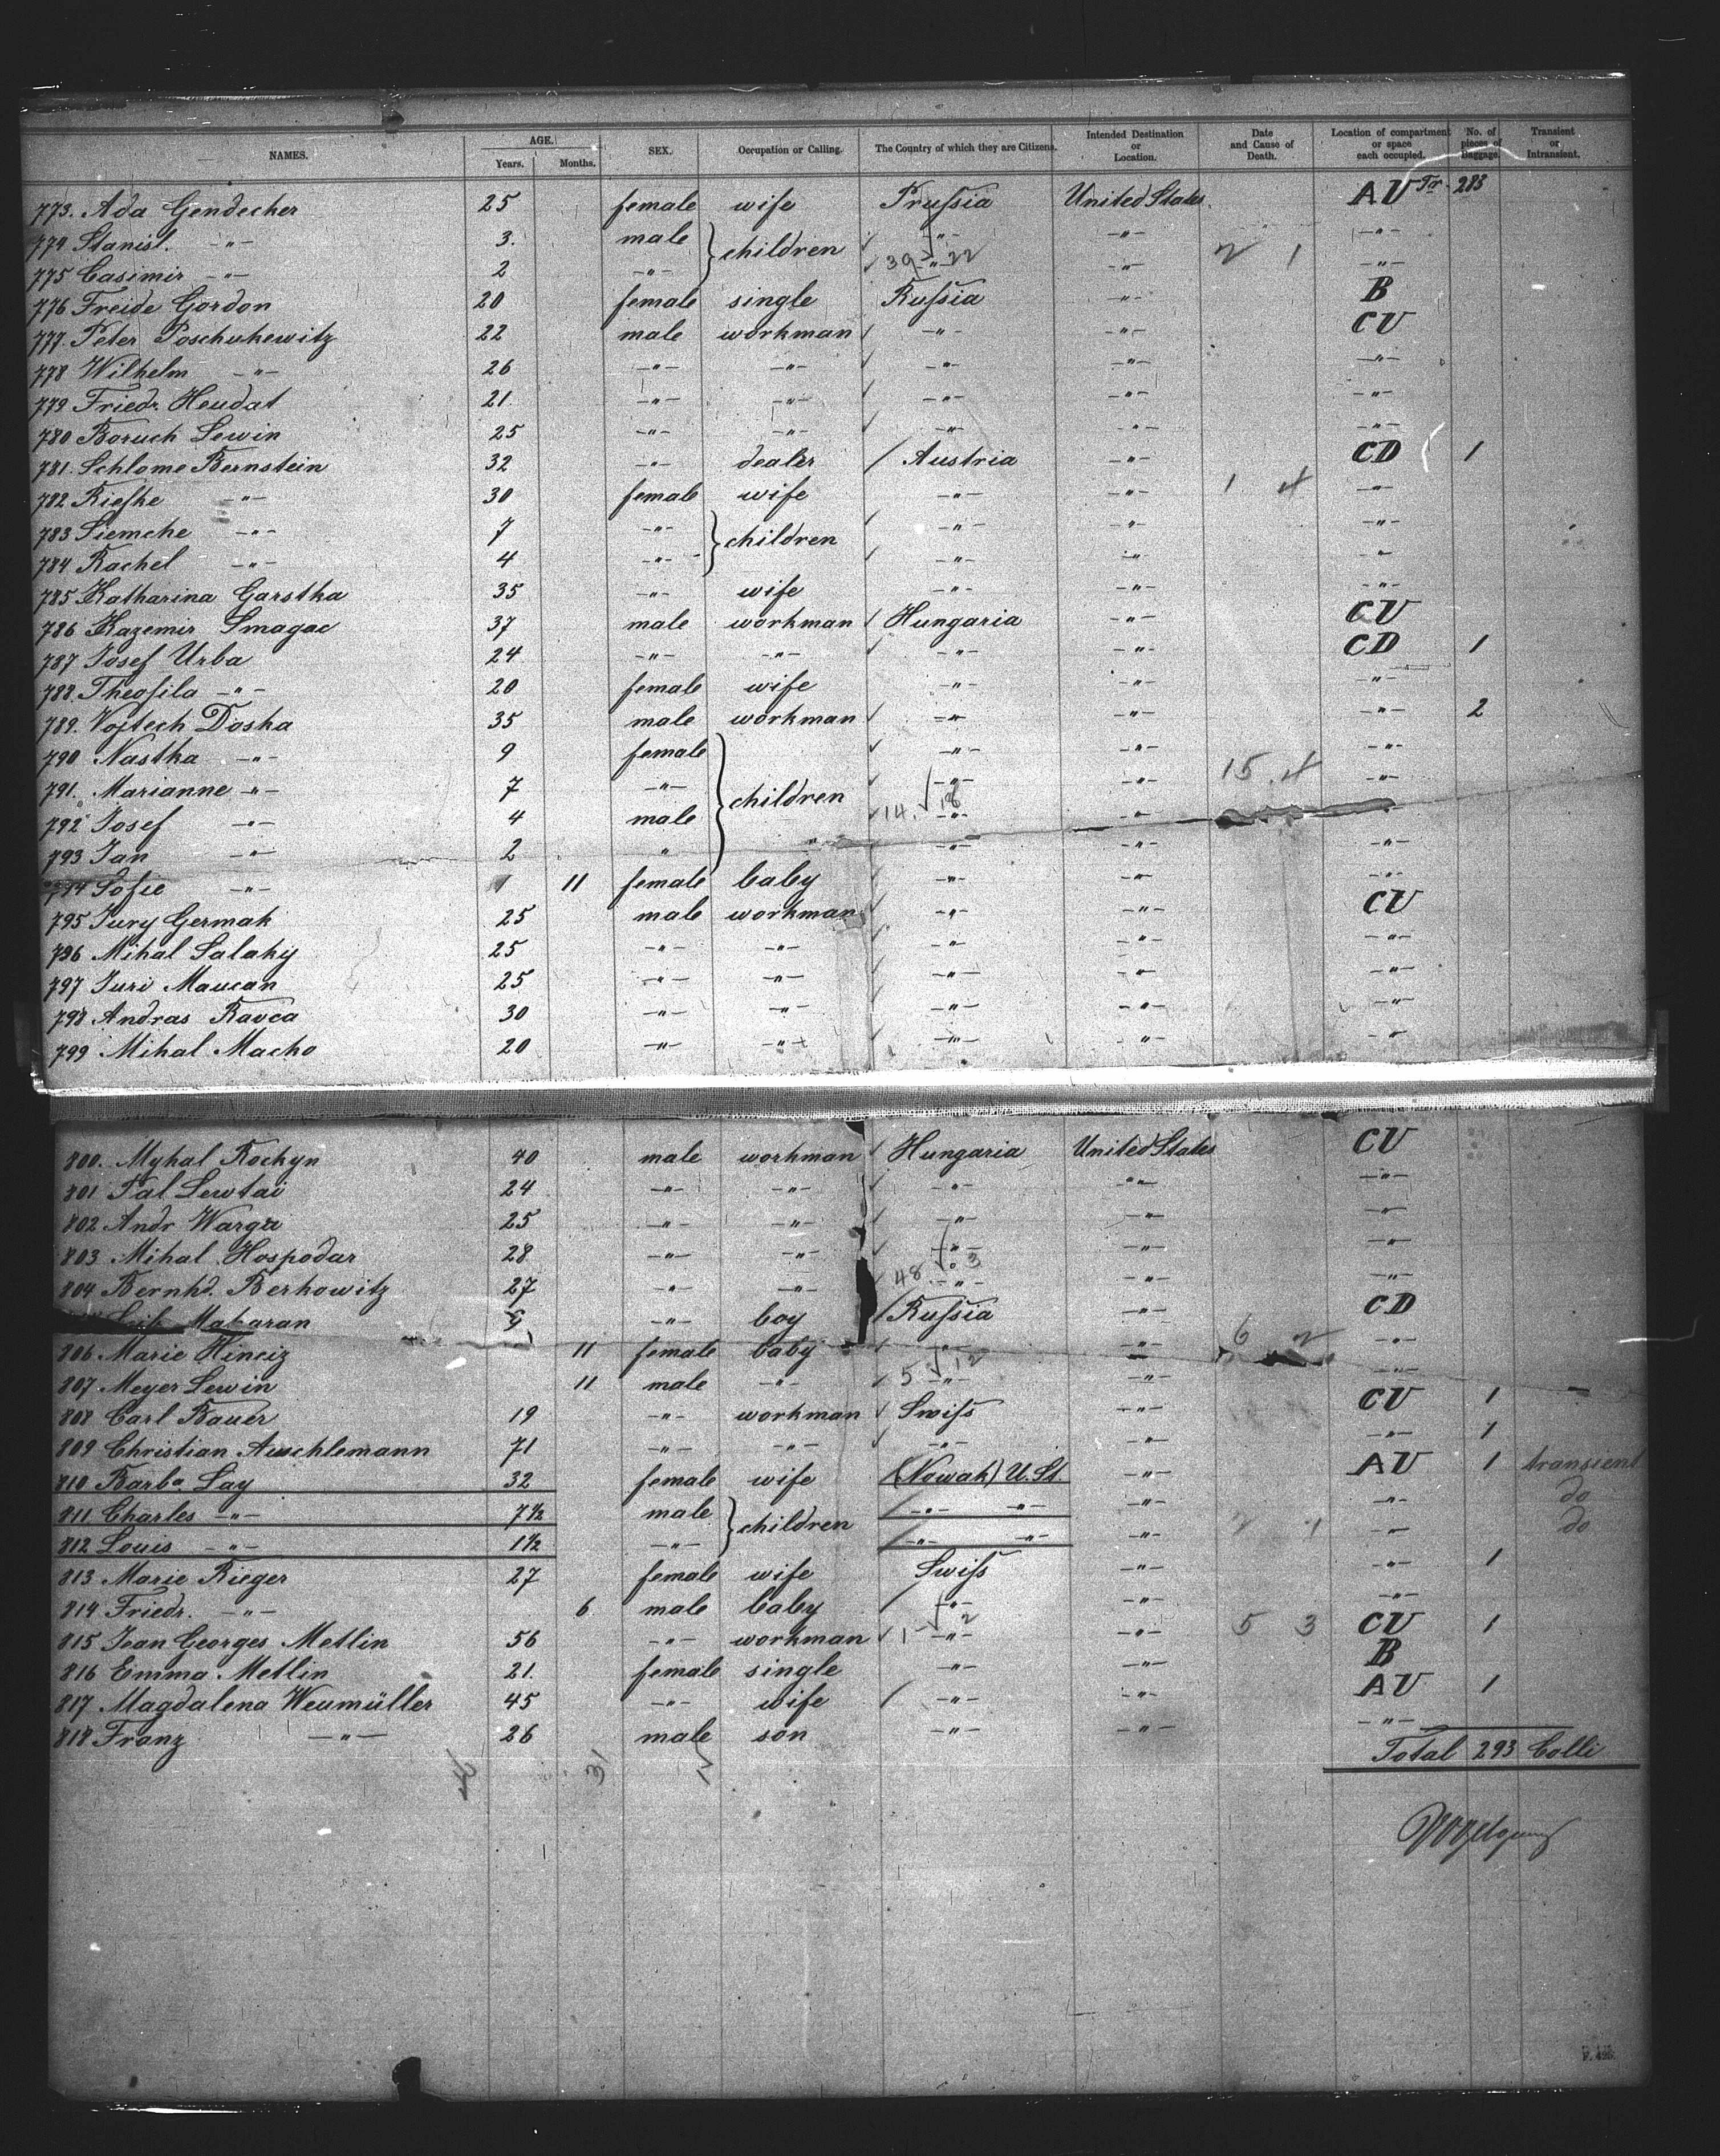 NAMES. AGE. Years. Months. SEX. Occupation or Calling. The Country of which they are Citizens. Intended Destination or Location. Date and Cause of Death. Location of compartment or space each occupied. No. of pieces of Baggage. Transient or Intransient.
773. Ada Gendecher 25 female wife Prussia United States. AU Tr. 283
774 Stanisl. -"- 3. male children -"- -"- -"-
775 Casimir -"- 2 -"- 39 -"- 22 -"- 2 1 -"-
776 Freide Gordon 20 female single Russia -"- B
777. Peter Poschuhewitz 22 male workman -"- -"- CU
778 Wilhelm -"- 26 -"- -"- -"- -"- -"-
779 Friedr. Heudat 21. -"- -"- -"- -"- -"-
780 Boruch Lewin 25 -"- -"- -"- -"- -"-
781. Schlome Bernstein 32 -"- dealer Austria -"- CD 1
782 Rieske -"- 30 female wife -"- -"- 1 4 -"-
783 Siemche -"- 7 -"- children -"- -"- -"-
784 Rachel -"- 4 -"- -"- -"- -"-
785 Katharina Garstka 35 -"- wife -"- -"- -"-
786 Kazemir Smagac 37 male workman Hungaria -"- CU
787 Josef Urba 24 -"- -"- -"- -"- CD 1
788. Theofila -"- 20 female wife -"- -"- -"-
789. Vojtech Doska 35 male workman -"- -"- -"- 2
790 Nastka -"- 9 female -"- -"- -"-
791. Marianne -"- 7 -"- children -"- -"- 15. 4 -"-
792 Josef -"- 4 male 14. 18 -"- -"-
793 Jan -"- 2 " " -"- -"- -"-
794 Sofie -"- 11 female baby -"- -"- -"-
795 Jury Germak 25 male workman -"- -"- CU
796 Mihal Salaky 25 -"- -"- -"- -"- -"-
797 Juri Maucan 25 -"- -"- -"- -"- -"-
798 Andras Ravca 30 -"- -"- -"- -"- -"-
799 Mihal Macho 20 -"- -"- -"- -"- -"-
800. Myhal Rockyn 40 male workman Hungaria United States CU
801 Pal Lewtai 24 -"- -"- -"- -"- -"-
802 Andr Warga 25 -"- -"- -"- -"- -"-
803 Mihal Hospodar 28 -"- -"- -"- -"- -"-
804 Bernhd. Berkowitz 27 -"- -"- 48 3 -"- -"- -"-
Makaran -"- boy Russia -"- CD
806. Marie Hinciz 11 female baby -"- -"- 6 2 -"-
807. Meyer Lewin 11 male -"- 5 12 -"- -"- -"-
808 Carl Bauer 19 -"- workman Swiss -"- CU 1
809 Christian Aeschlemann 71 -"- -"- -"- -"- -"- 1
810 Barba Lay 32 female wife (Nowak) U. St -"- AU 1 transient
811 Charles -"- 7 1/2 male children -"- -"- -"- -"- do
812 Louis -"- 1 1/2 -"- -"- -"- -"- 2 1 -"- do
813 Marie Rieger 27 female wife Swiss -"- -"- 1
814 Friedr. -"- 6 male baby -"- -"- -"-
815 Jean Georges Metlin 56 -"- workman 1 -"- 2 -"- 5 3 CU 1
816 Emma Metlin 21. female single -"- -"- B
817 Magdalena Weumüller 45 -"- wife -"- -"- AU 1
818 Franz -"- 26 male son -"- -"- -"-
Total 293 Colli
31